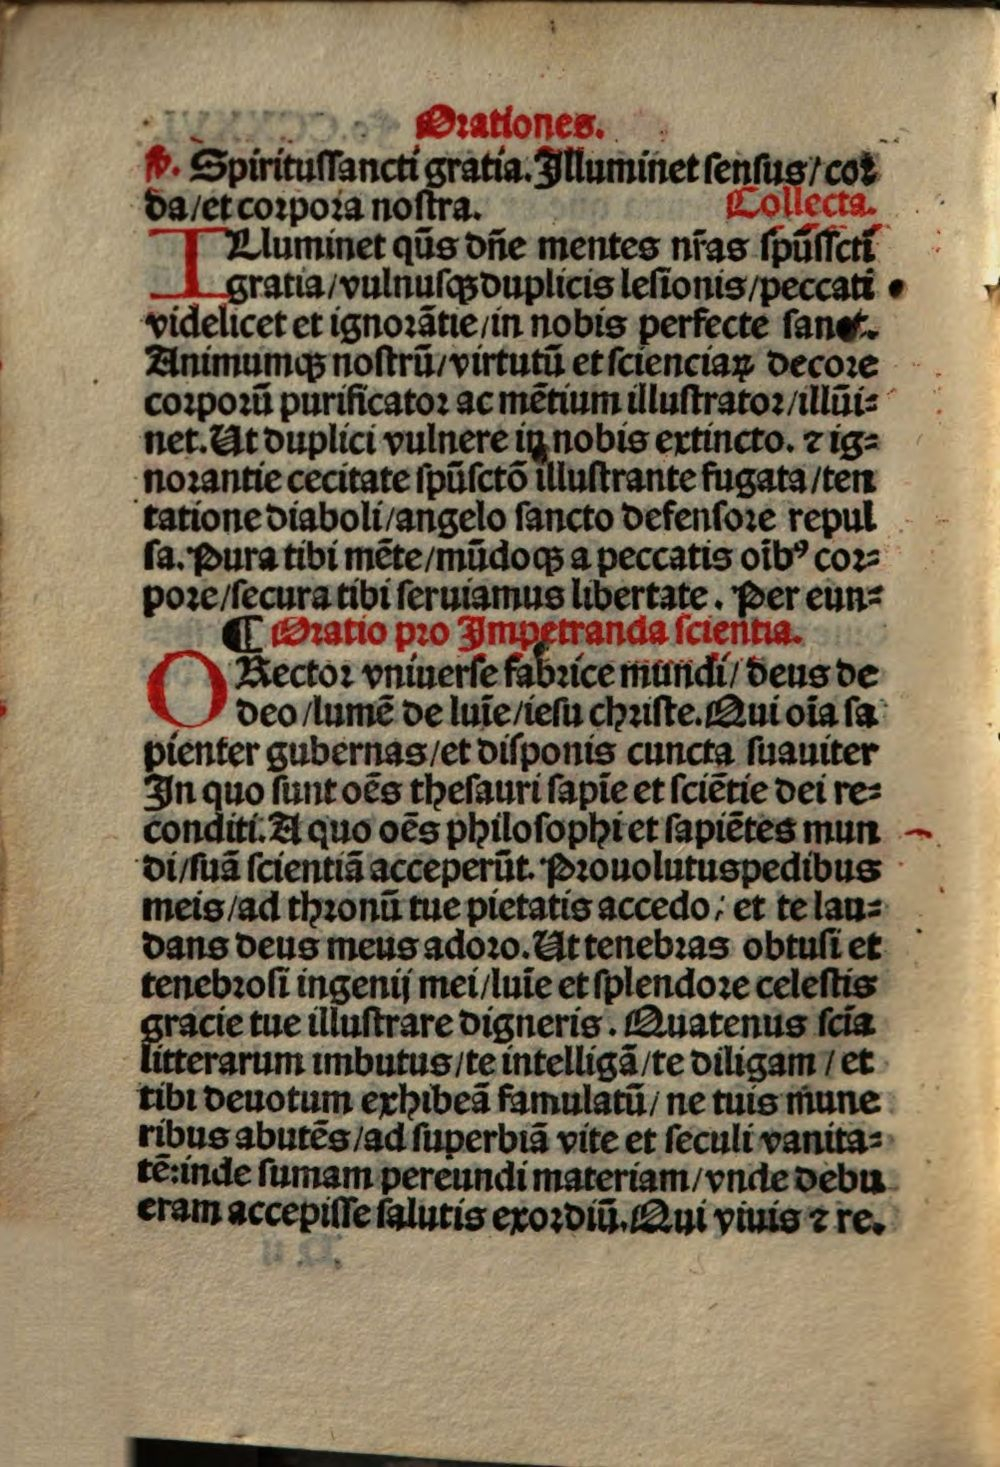 Orationes.
℣. Spiritussancti gratia. Illuminet sensus/ cor
da/et corpora nostra. Collecta.
ILluminet qūs dn̄e mentes nr̄as spūsscti
gratia/vulnusqꝫ duplicis lesionis/peccati
videlicet et ignorātie/in nobis perfecte sanet.
Animumqꝫ nostrū/virtutū et scienciaꝝ decore
corporū purificator ac mētium illustrator/illūi-
net. Ut duplici vulnere in nobis extincto. ⁊ ig-
norantie cecitate spūsctō illustrante fugata/ten
tatione diaboli/angelo sancto defensore repul
sa. Pura tibi mēte/mūdoqꝫ a peccatis oībꝰ cor-
pore/secura tibi seruiamus libertate. Per eun-
¶ Oratio pro Impetranda scientia.
O Rector vniuerse fabrice mundi/ deus de
deo/lumē de luīe/iesu christe. Qui oīa sa
pienter gubernas/et disponis cuncta suauiter
In quo sunt oēs thesauri sapīe et sciētie dei re-
conditi. A quo oēs philosophi et sapiētes mun
di/suā scientiā acceperūt. Prouolutus pedibus
meis/ad thronū tue pietatis accedo: et te lau-
dans deus meus adoro. Ut tenebras obtusi et
tenebrosi ingenij mei/luīe et splendore celestis
gracie tue illustrare digneris. Quatenus scīa
litterarum imbutus/te intelligā/te diligam/ et
tibi deuotum exhibeā famulatū/ ne tuis mune
ribus abutēs/ad superbiā vite et seculi vanita-
tē: inde sumam pereundi materiam/vnde debu
eram accepisse salutis exordiū. Qui viuis ⁊ re.